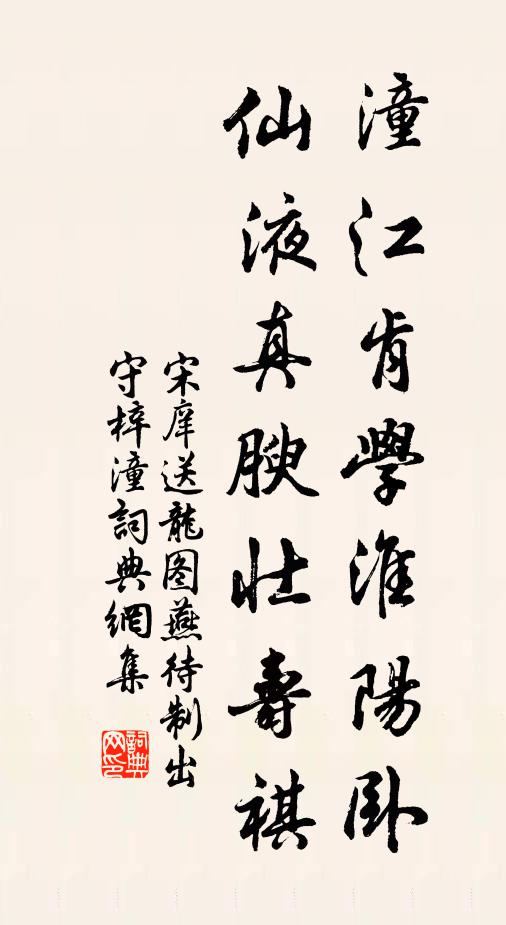 潼江肯學淮陽卧
仙液真腴壮壽祺
宋庠送龍图燕待制出
守梓潼詞典網集
詞典
网印